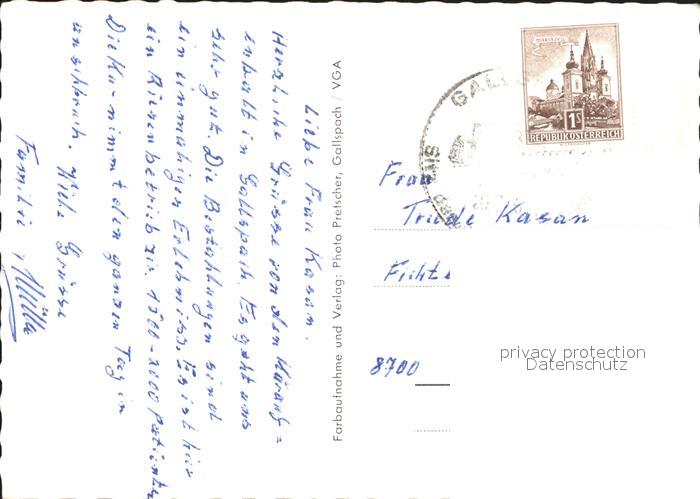 Liebe Frau Kasan.
Herzliche Grüsse von dem Kurauf=
enthalt in Gallspach. Es geht uns
sehr gut. Die Bestrahlungen sind
ein einmaliges Erlebniss. Es ist hier
ein Riesenbetrieb zir. 1500-2000 Patienten
Die Kur nimmt den ganzen Tag in
anspruch. Viele Grüsse
Familie Müller
Farbaufnahme und Verlag: Photo Pretscher, Gallspach / VGA
MARIAZELL
1S
REPUBLIK ÖSTERREICH
Frau
Trude Kasan
Fichte
8700
privacy protection
Datenschutz